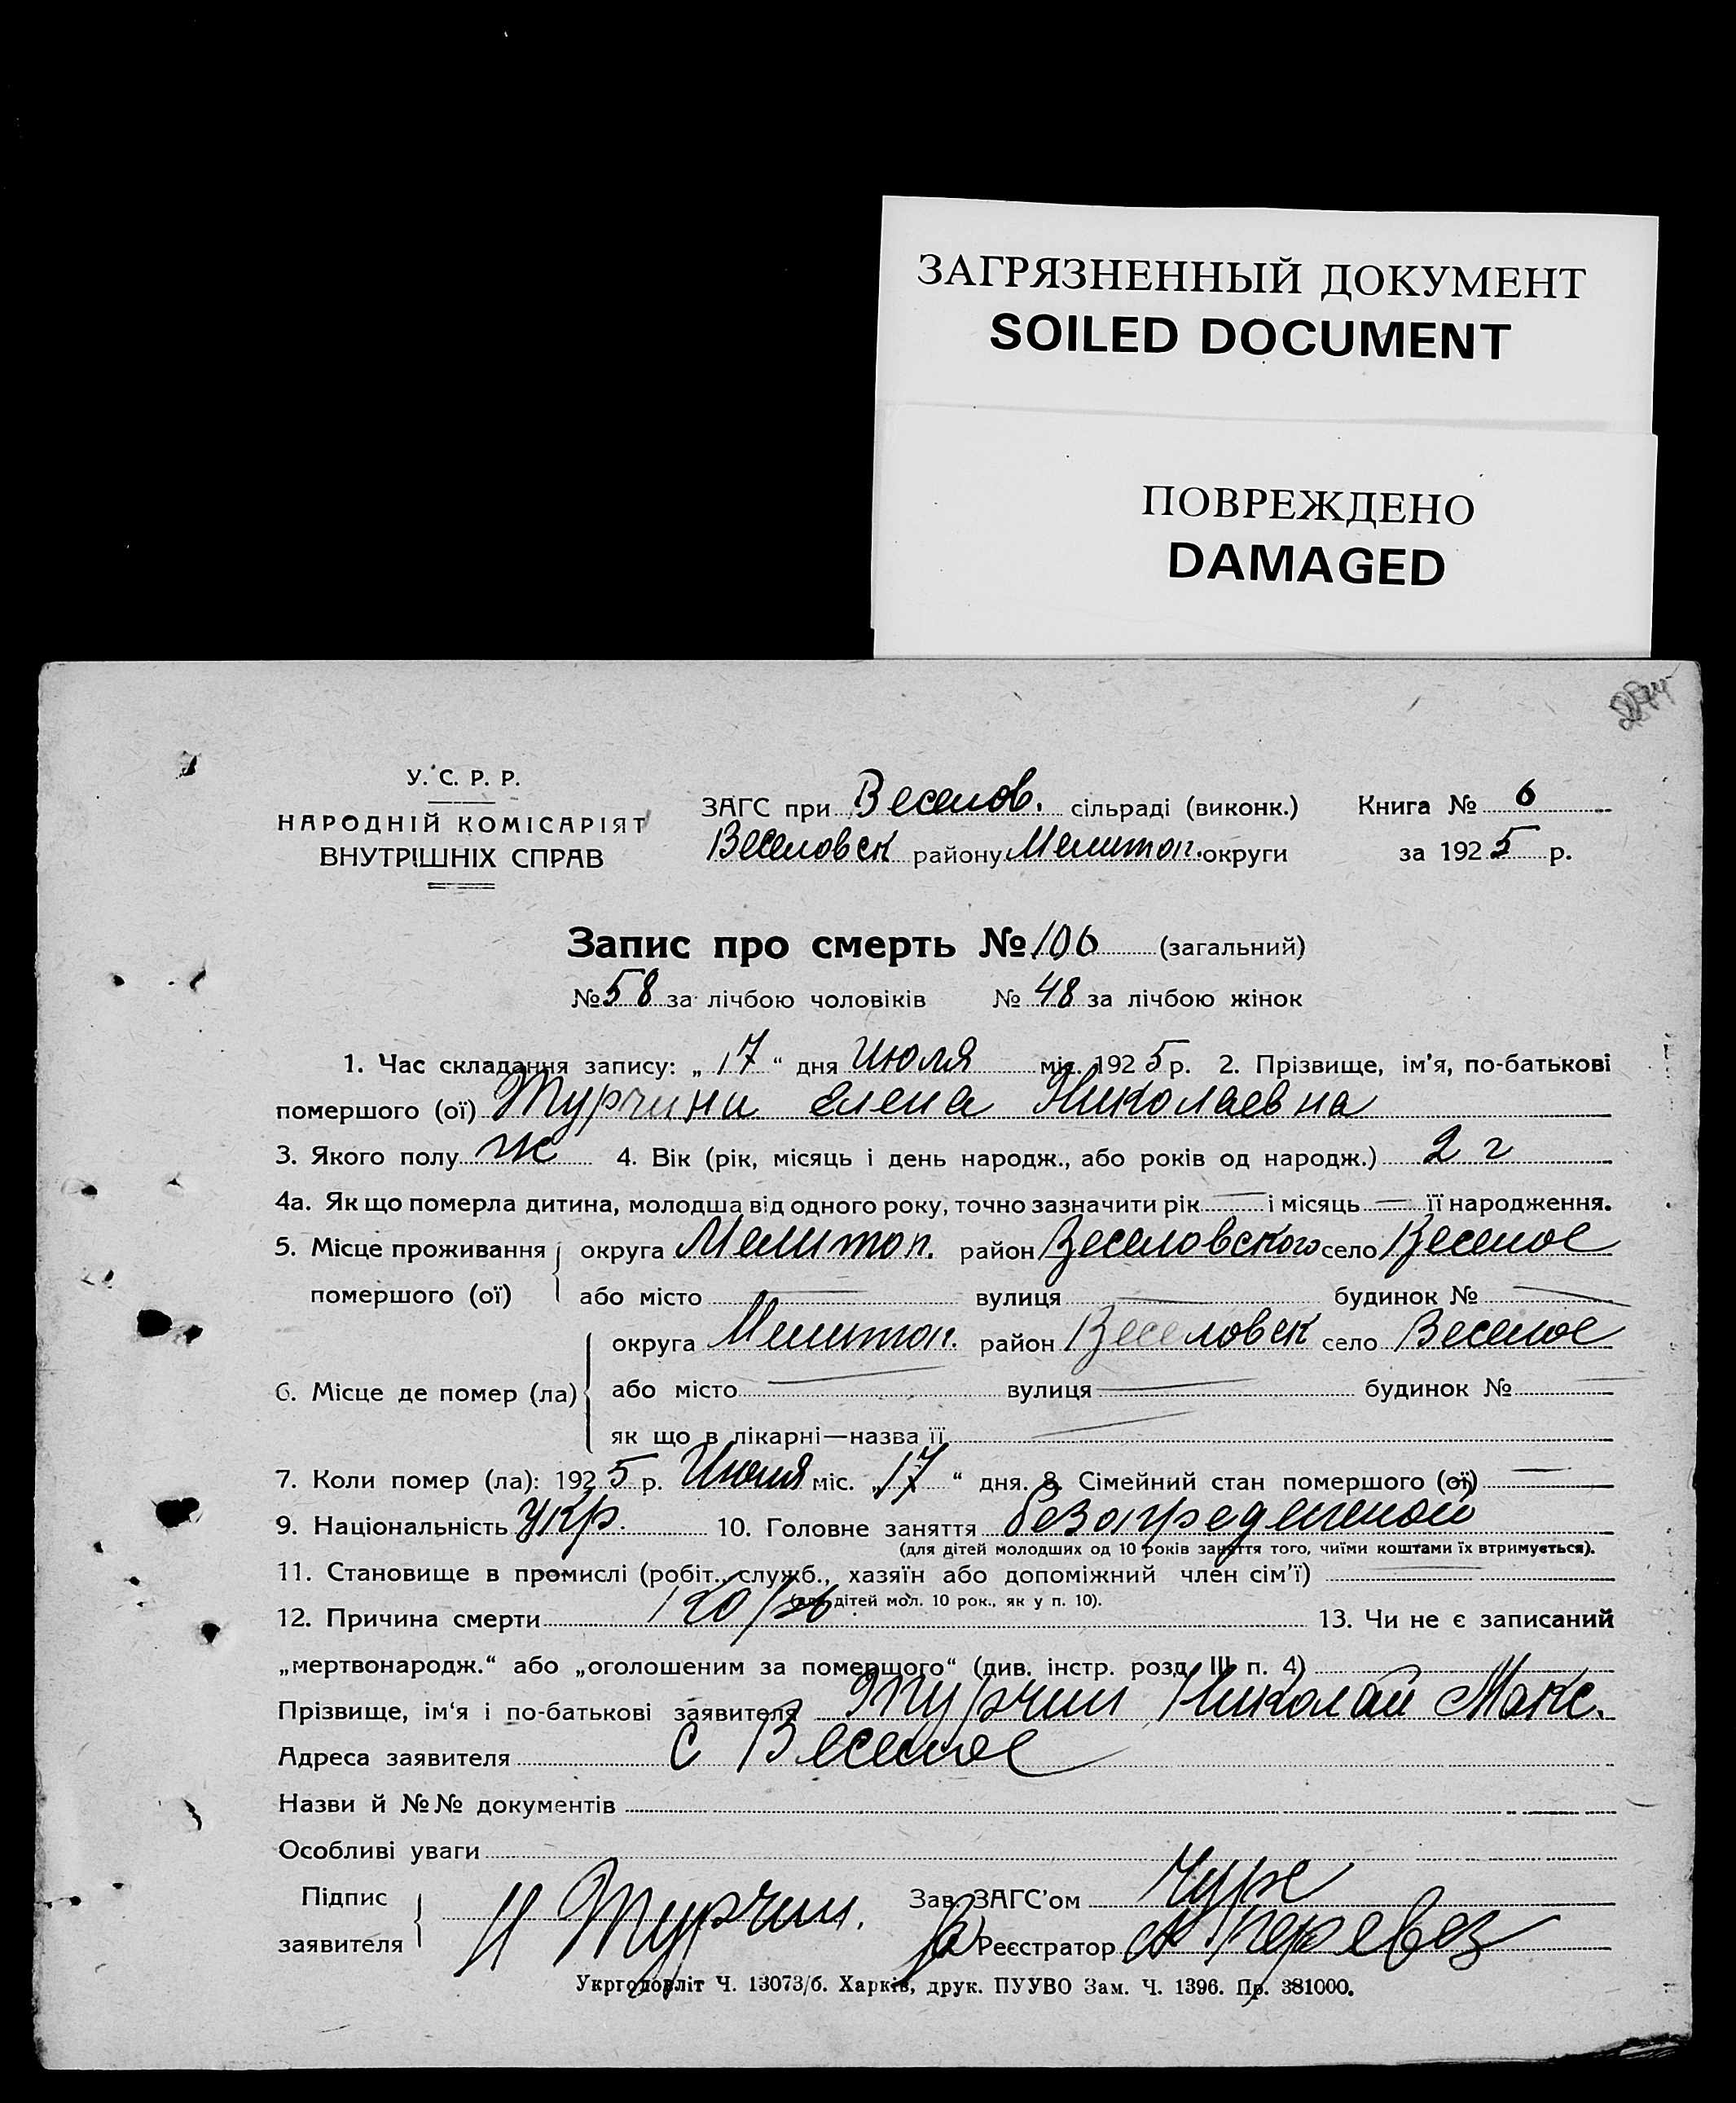 ЗАГРЯЗНЕННЫЙ ДОКУМЕНТ
SOILED DOCUMENT
ПОВРЕЖДЕНО
DAMAGED
У. С. Р. Р.
НАРОДНІЙ КОМІСАРІЯТ
ВНУТРІШНІХ СПРАВ
ЗАГС при Веселов. сільраді (виконк.) Книга № 6
Веселовск району Мелитоп. округи за 1925 р.
Запис про смерть № 106 (загальний)
№ 58 за лічбою чоловіків № 48 за лічбою жінок
1. Час складання запису: „ 17 “ дня Июля міс. 1925 р. 2. Прізвище, ім’я, по-батькові
помершого (ої) Турчини Елена Николаевна
3. Якого полу ж 4. Вік (рік, місяць і день народж., або років од народж.) 2 г
4а. Як що померла дитина, молодша від одного року, точно зазначити рік — і місяць — її народження.
5. Місце проживання округа Мелитоп. район Веселовского село Веселое
помершого (ої) або місто — вулиця — будинок № —
округа Мелитоп. район Веселовск село Веселое
6. Місце де помер (ла) або місто — вулиця — будинок № —
як що в лікарні—назва її —
7. Коли помер (ла): 1925 р. Июля міс. „ 17 “ дня. 8. Сімейний стан помершого (ої) —
9. Національність укр. 10. Головне заняття
(для дітей молодших од 10 років заняття того, чиїми коштами їх втримується).
11. Становище в промислі (робіт., служб., хазяїн або допоміжний член сім’ї) —
(для дітей мол. 10 рок., як у п. 10).
12. Причина смерти корь 13. Чи не є записаний
„мертвонародж.“ або „оголошеним за померщого“ (див. інстр. розд. III п. 4)
Прізвище, ім‘я і по-батькові заявителя Турчин Николай Макс.
Адреса заявителя с Веселое
Назви й №№ документів
Особливі уваги
Підпис
заявителя Н Турчин.
Зав. ЗАГС’ом
Реєстратор
Укрголовліт Ч. 13073/б. Харків, друк. ПУУВО Зам. Ч. 1396. Пр. 381000.